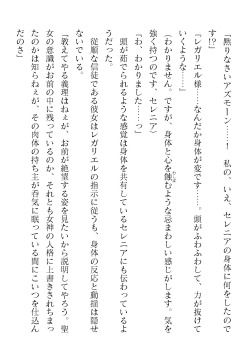 「黙りなさいアズモーン……！　私の、いえ、セレニアの身体に何をしたので
す!?」
『レガリエル様……なんだか身体が変です……。頭がふわふわして、力が抜けて
いくような……』
（わかりません。ですが、身体と心を蝕むような忌まわしい感じがします。気を
強く持つのです、セレニア）
『わ、わかりました……っ』
　頭が茹でられるような感覚は身体を共有しているセレニアにも伝わっているよ
うだった。
　従順な信徒である彼女はレガリエルの指示に従うも、身体の反応と動揺は隠せ
ないでいる。
「教えてやる義理はねぇが、お前が絶望する姿を見たいから説明してやろう。聖
女の意識がお前の中に残っているのか、それとも女神の人格に上書きされちまっ
たのかは知らねぇが、その肉体の持ち主が呑気に眠っている間にこいつを仕込ん
だのさ」